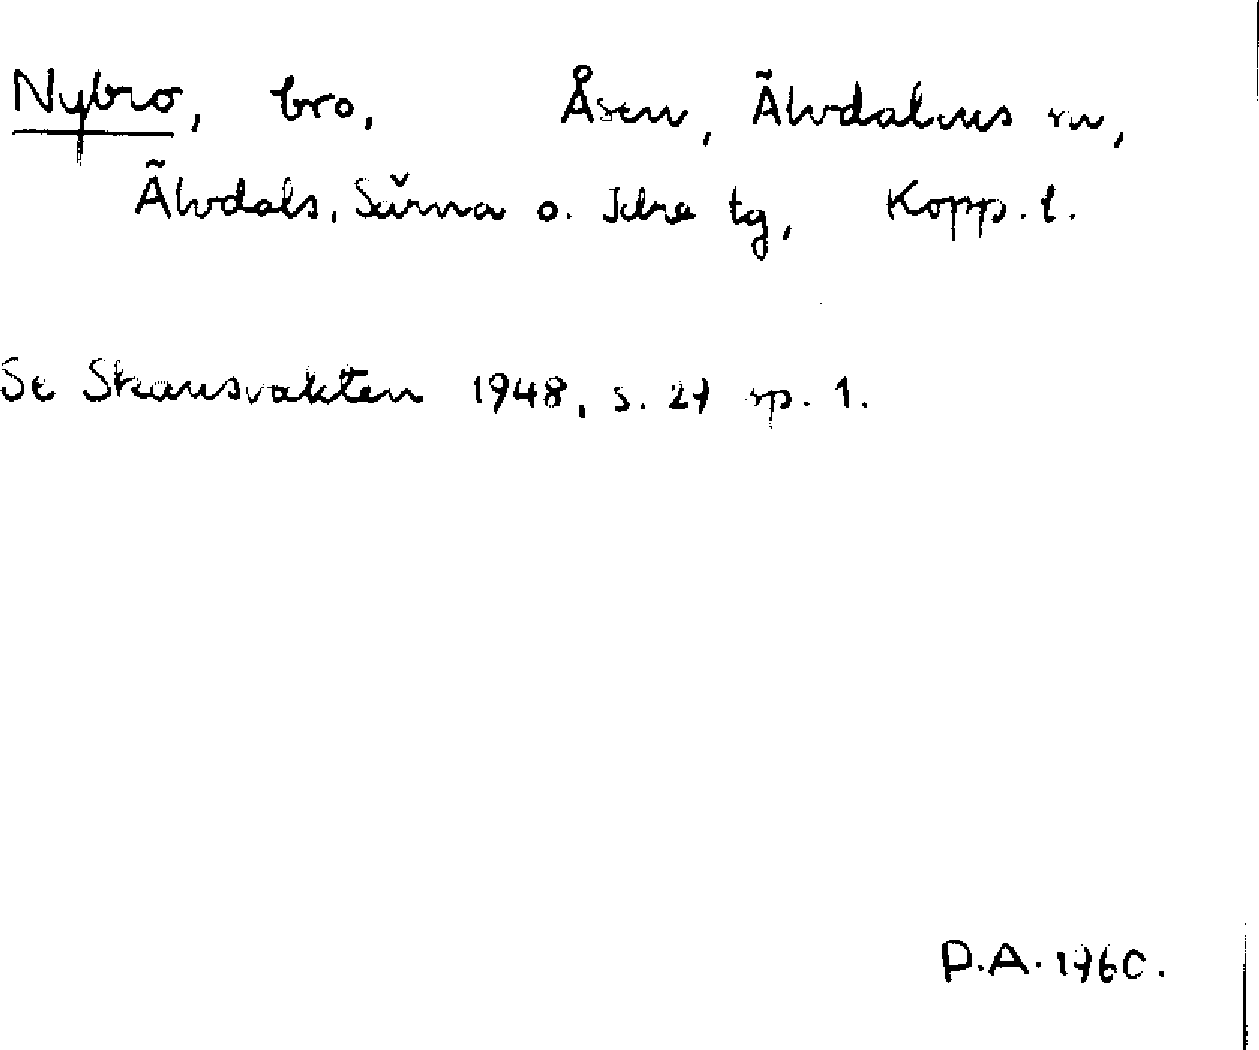 Nybro, bro, Åsen, Älvdalens sn,
Älvdals, Särna o. Idre tg, Kopp. l.
Se Skansvakten 1948, s. 27 sp. 1.
D.A. 1960.